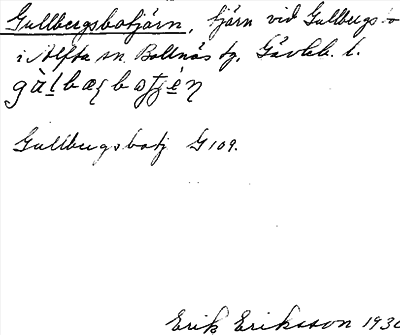 Gullbergsbotjärn, tjärn vid Gullbergsbo
i Alfta sn, Bollnäs tg, Gävleb. l.
Gullbergsbotj G 109.
Erik Eriksson 1930